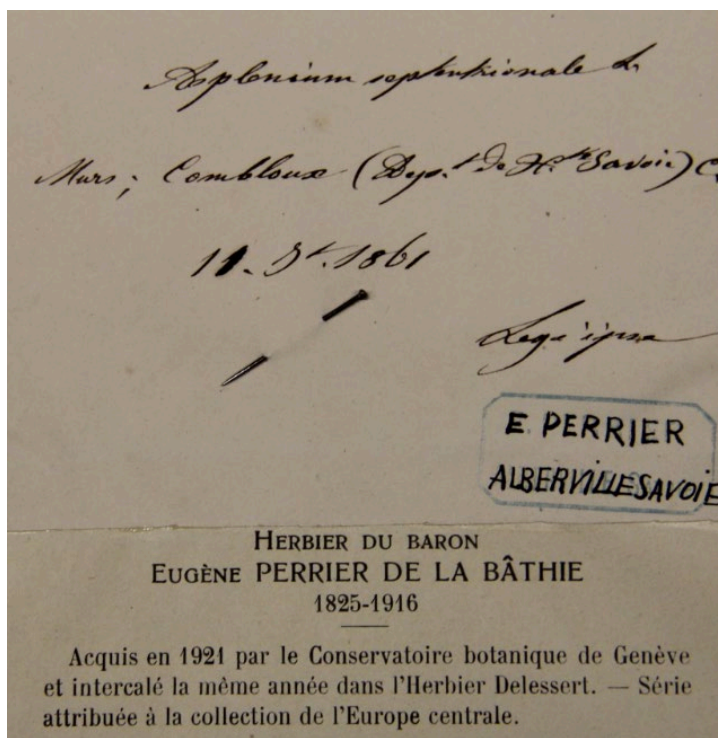 Asplenium septentrionale L.
Murs; Combloux (Dep.t de H.te Savoie) C.
11. 7t. 1861
Legi ipse
E. PERRIER
ALBERVILLE SAVOIE
HERBIER DU BARON
EUGÈNE PERRIER DE LA BÂTHIE
1825-1916
Acquis en 1921 par le Conservatoire botanique de Genève
et intercalé la même année dans l'Herbier Delessert. — Série
attribuée à la collection de l'Europe centrale.